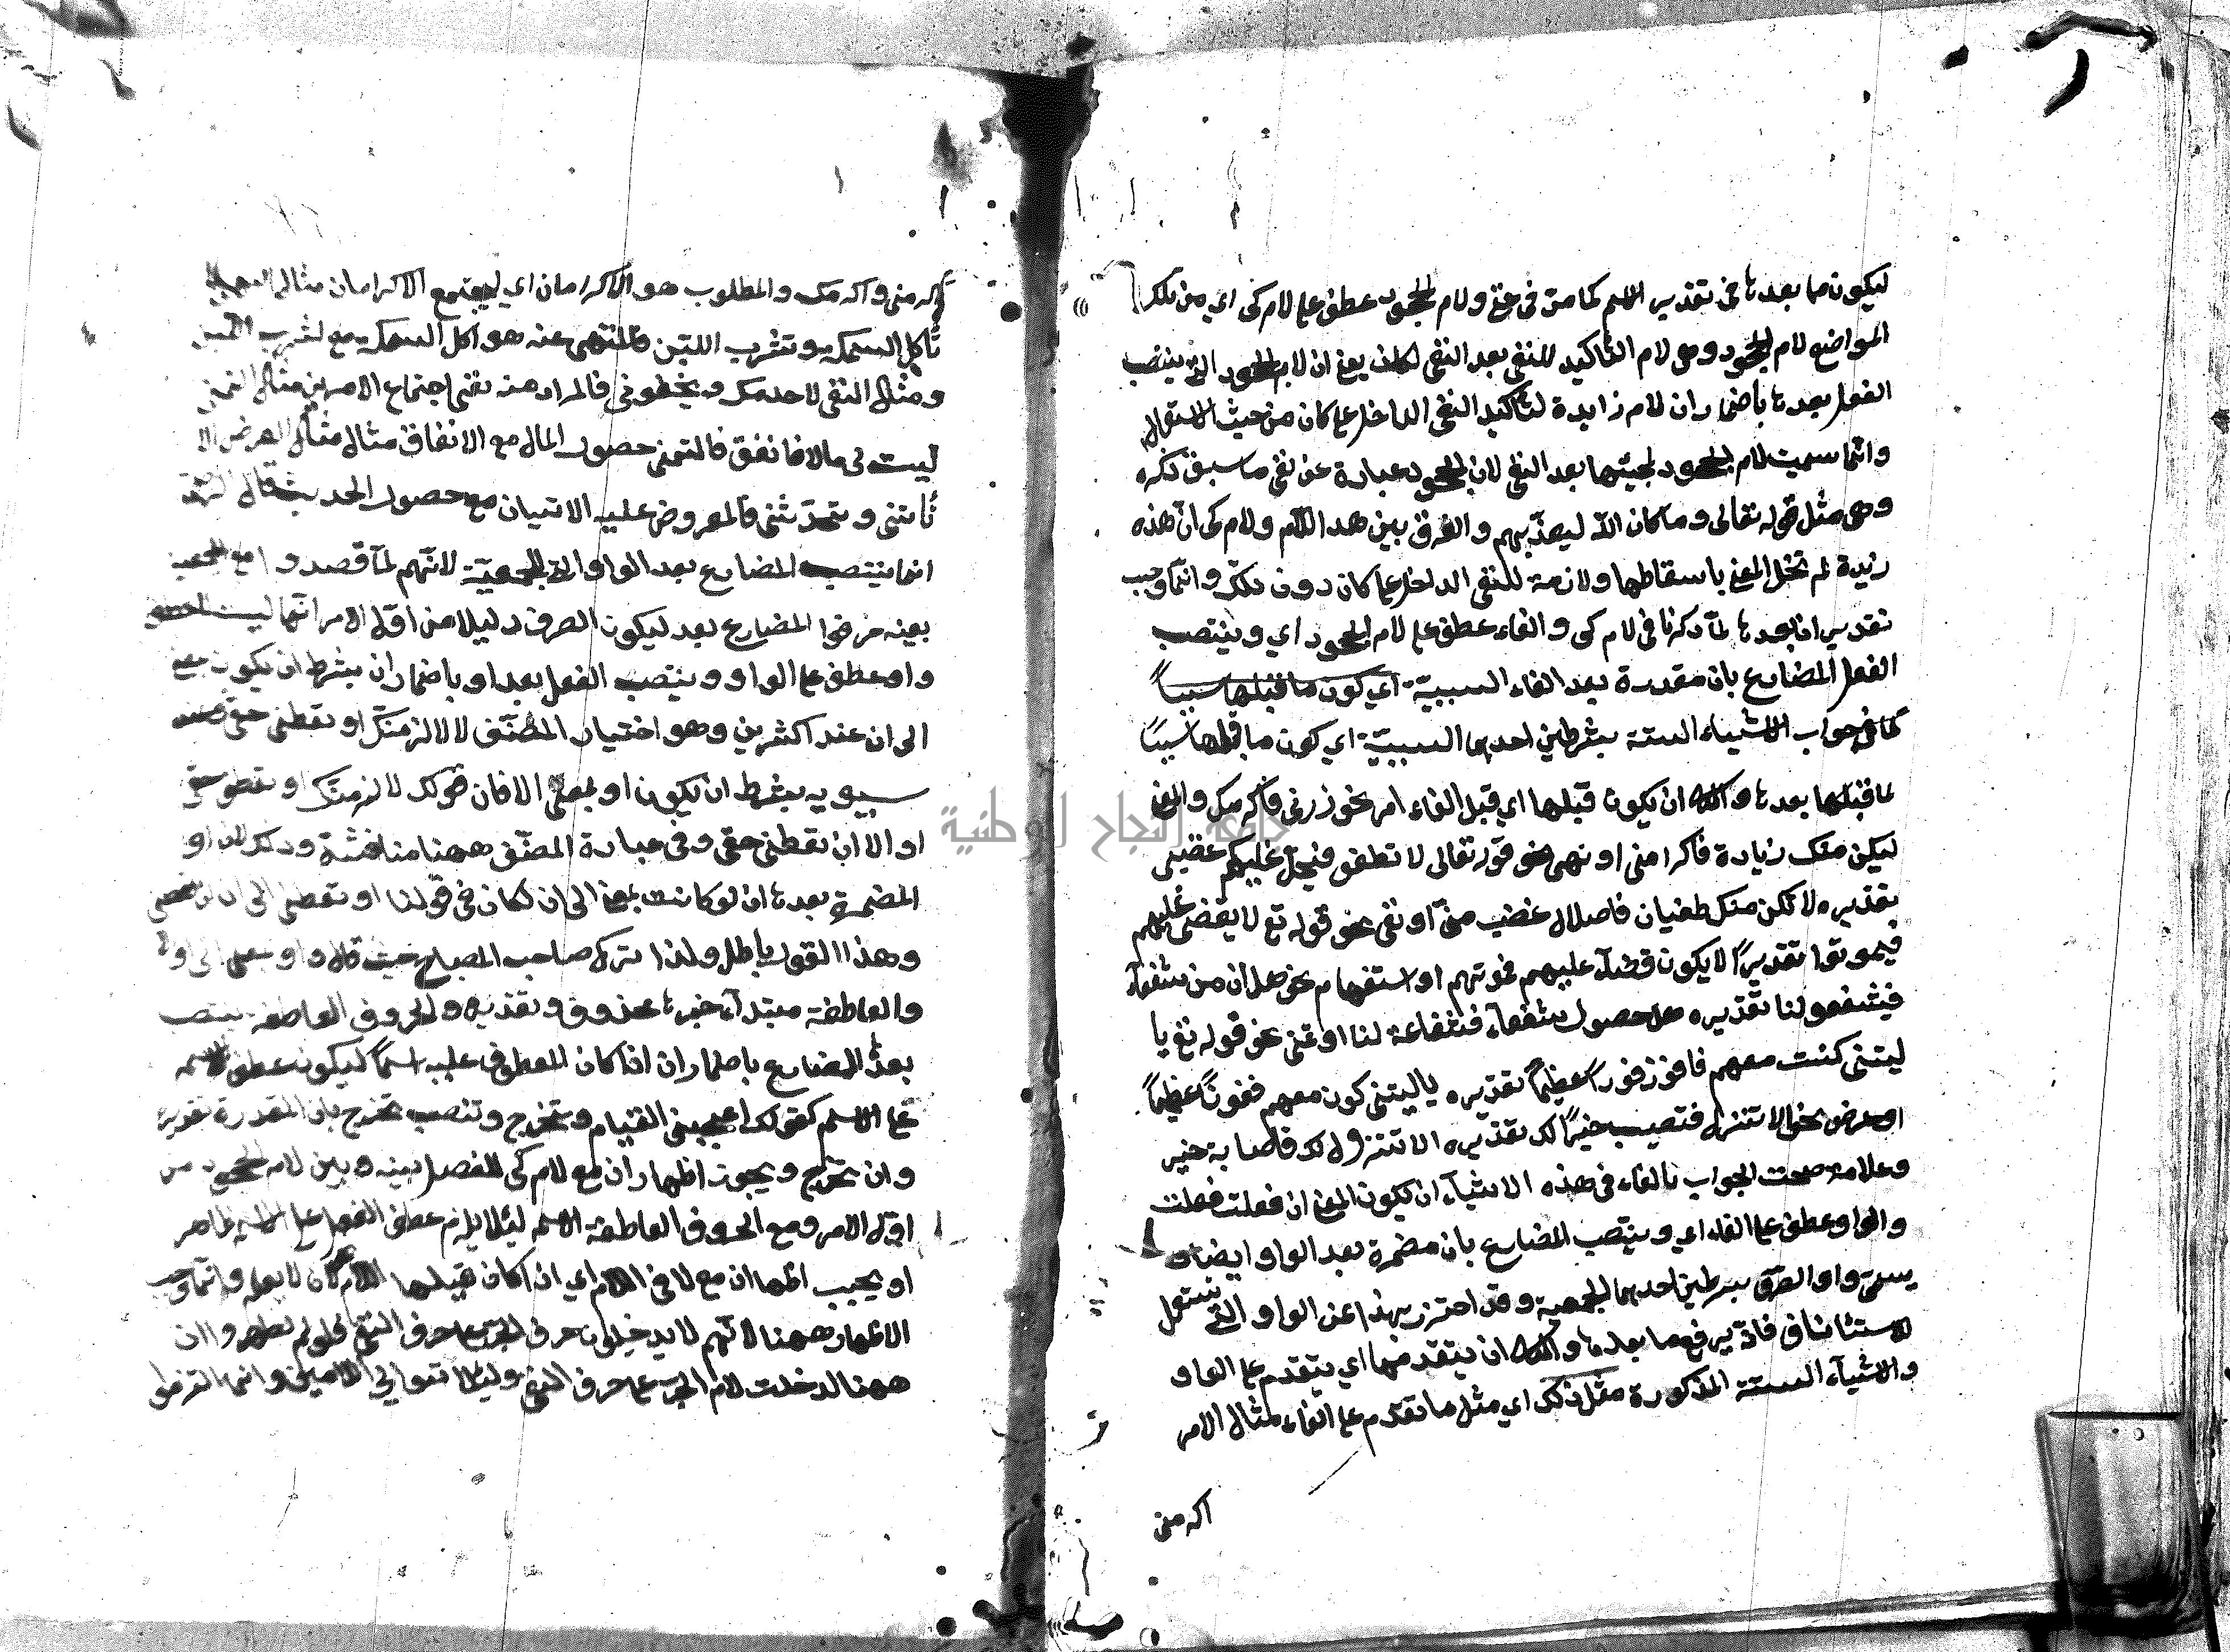 ليكون ما بعدها فى تقدير الاسم كما مر فى حتى ولام الجحود عطف على لام كى اي من تلك
المواضع لام الجحود وهى لام التأكيد للنفى بعد النفى لكان يعنى ان لام الجحود التى ينتصب
الفعل بعدها باضمار ان لام زايدة لتأكيد النفى الداخل على كان من حيث الاستعمال
وانما سميت لام الجحود لمجيئها بعد النفى لان الجحود عبارة عن نفى ما سبق ذكره
وهى مثل قوله تعالى وما كان الله ليعذبهم والفرق بين هذا اللام ولام كى ان هذه
زيدة لم تخل المعنى باسقاطها ولازمة للنفى الداخل على كان دون تلك وانما وجب
تقدير ان بعدها لما ذكرنا فى لام كى والفاء عطف على لام الجحود اي وينتصب
الفعل المضارع بان مقدرة بعد الفاء السببية اي كون ما قبلها سببا
كما فى جواب الاشياء الستة بشرطين احدهما السببية اي كون ما قبلها سببا
لما قبلها بعدها والثانى ان يكون قبلها اي قبل الفاء امر نحو زرنى فأكرمك والمعنى
ليكن منك زيادة فاكرا منى او نهى نحو قوله تعالى لا تطغوا فيحل عليكم غضبى
تقديره لا يكن منك طغيان فاصلال غضب منى او نفى نحو قوله تع لا يقضى عليهم
فيموتوا تقديرًا لا يكون قضاء عليهم فموتهم او استفهام نحو هل لنا من شفعاء
فيشفعوا لنا تقديره هل حصول شفعاء فشفاعة لنا او تمنى نحو قوله تع يا
ليتنى كنت معهم فافوز فوزا عظيما تقديره يا ليتنى كون معهم ففوزا عظيما
او عرض نحو الا تنزل فتصيب خيرا لك تقديره الا تنزل لك فاصابة خير
وعلامة صحت الجواب بالفاء فى هذه الاشياء ان يكون المعنى ان فعلت فعلت
والواو عطف على الفاء اي وينتصب المضارع بان مضمرة بعد الواو ايضا و
يسمى واو الصرف بشرطين احدهما الجمعية وقد احترز بهذا عن الواو التى تستعمل
للاستئناف فانه يرفع ما بعدها والثانى ان يتقدمها اي يتقدم على الواو
والاشياء الستة المذكورة مثل ذلك اي مثل ما تقدم على الفاء مثال الامر
اكرمنى
اكرمنى واكرمك والمطلوب هو الاكرامان اي ليجتمع الاكرامان مثال النهى لا
تأكل السمك وتشرب اللبن فالمنتهى عنه هو اكل السمك مع شرب اللبن
ومثال النفى لا حدمك ويخطوفى فالمراد منه نفى اجتماع الامرين مثال التمنى
ليت لى مالا فانفق فالتمنى حصول المال مع الانفاق مثال مثال العرض الا
تأتنى وتحدثنى فالمعروض عليه الاتيان مع حصول الحديث
انما ينتصب المضارع بعد الواو التى للجمعية لانهم لما قصدوا مع الجمعية
بعينه صرفوا المضارع بعد ليكون الصرف دليلا من اول الامر انها ليست للعطف
واو عطف على الواو وينتصب الفعل بعد او باضمار ان بشرط ان يكون بمعنى
الى ان عند اكثرين وهو اختيار المصنف لالزمنك او تعطنى حقى عند
سيبويه بشرط ان يكون او بمعنى الا فان قولك لالزمنك او تعطنى حقى
او الا ان تعطنى حقى وفى عبارة المصنف ههنا مناقشة وذلك لان او
المضمرة بعدها ان لو كانت بمعنى الى ان لكان فى قولنا او تعطنى الى ان ان تعطنى
وهذا القول باطل ولذا ترك صاحب المصباح حيث قال واو بمعنى الى او الا
والعاطفة مبتدأ خبرها محذوف وتقديره والحروف العاطفة ينتصب
بعدها المضارع باضمار ان اذا كان المعطوف عليه اسما ليكون عطف الاسم
على الاسم كقولك اعجبنى القيام وتخرج وتنصب تخرج بان المقدرة تقديره
وان تخرج ويجوز اظهار ان مع لام كى للفصل بينه وبين لام الجحود من
اول الامر ومع الحروف العاطفة الاسم لئلا يلزم عطف الفعل على الاسم ظاهر
او يجب اظهار ان مع لا فى اللام اي اذا كان قبلها اللام لان لا يعلم وانما وجب
الاظهار ههنا لانهم لا يدخلون حرف الجر على حرف النفى فلو لم يظهروا ان
ههنا لدخلت لام الجر على حرف النفى ولئلا تتوالى اللامين وانما التزموا
جامعة النجاح الوطنية